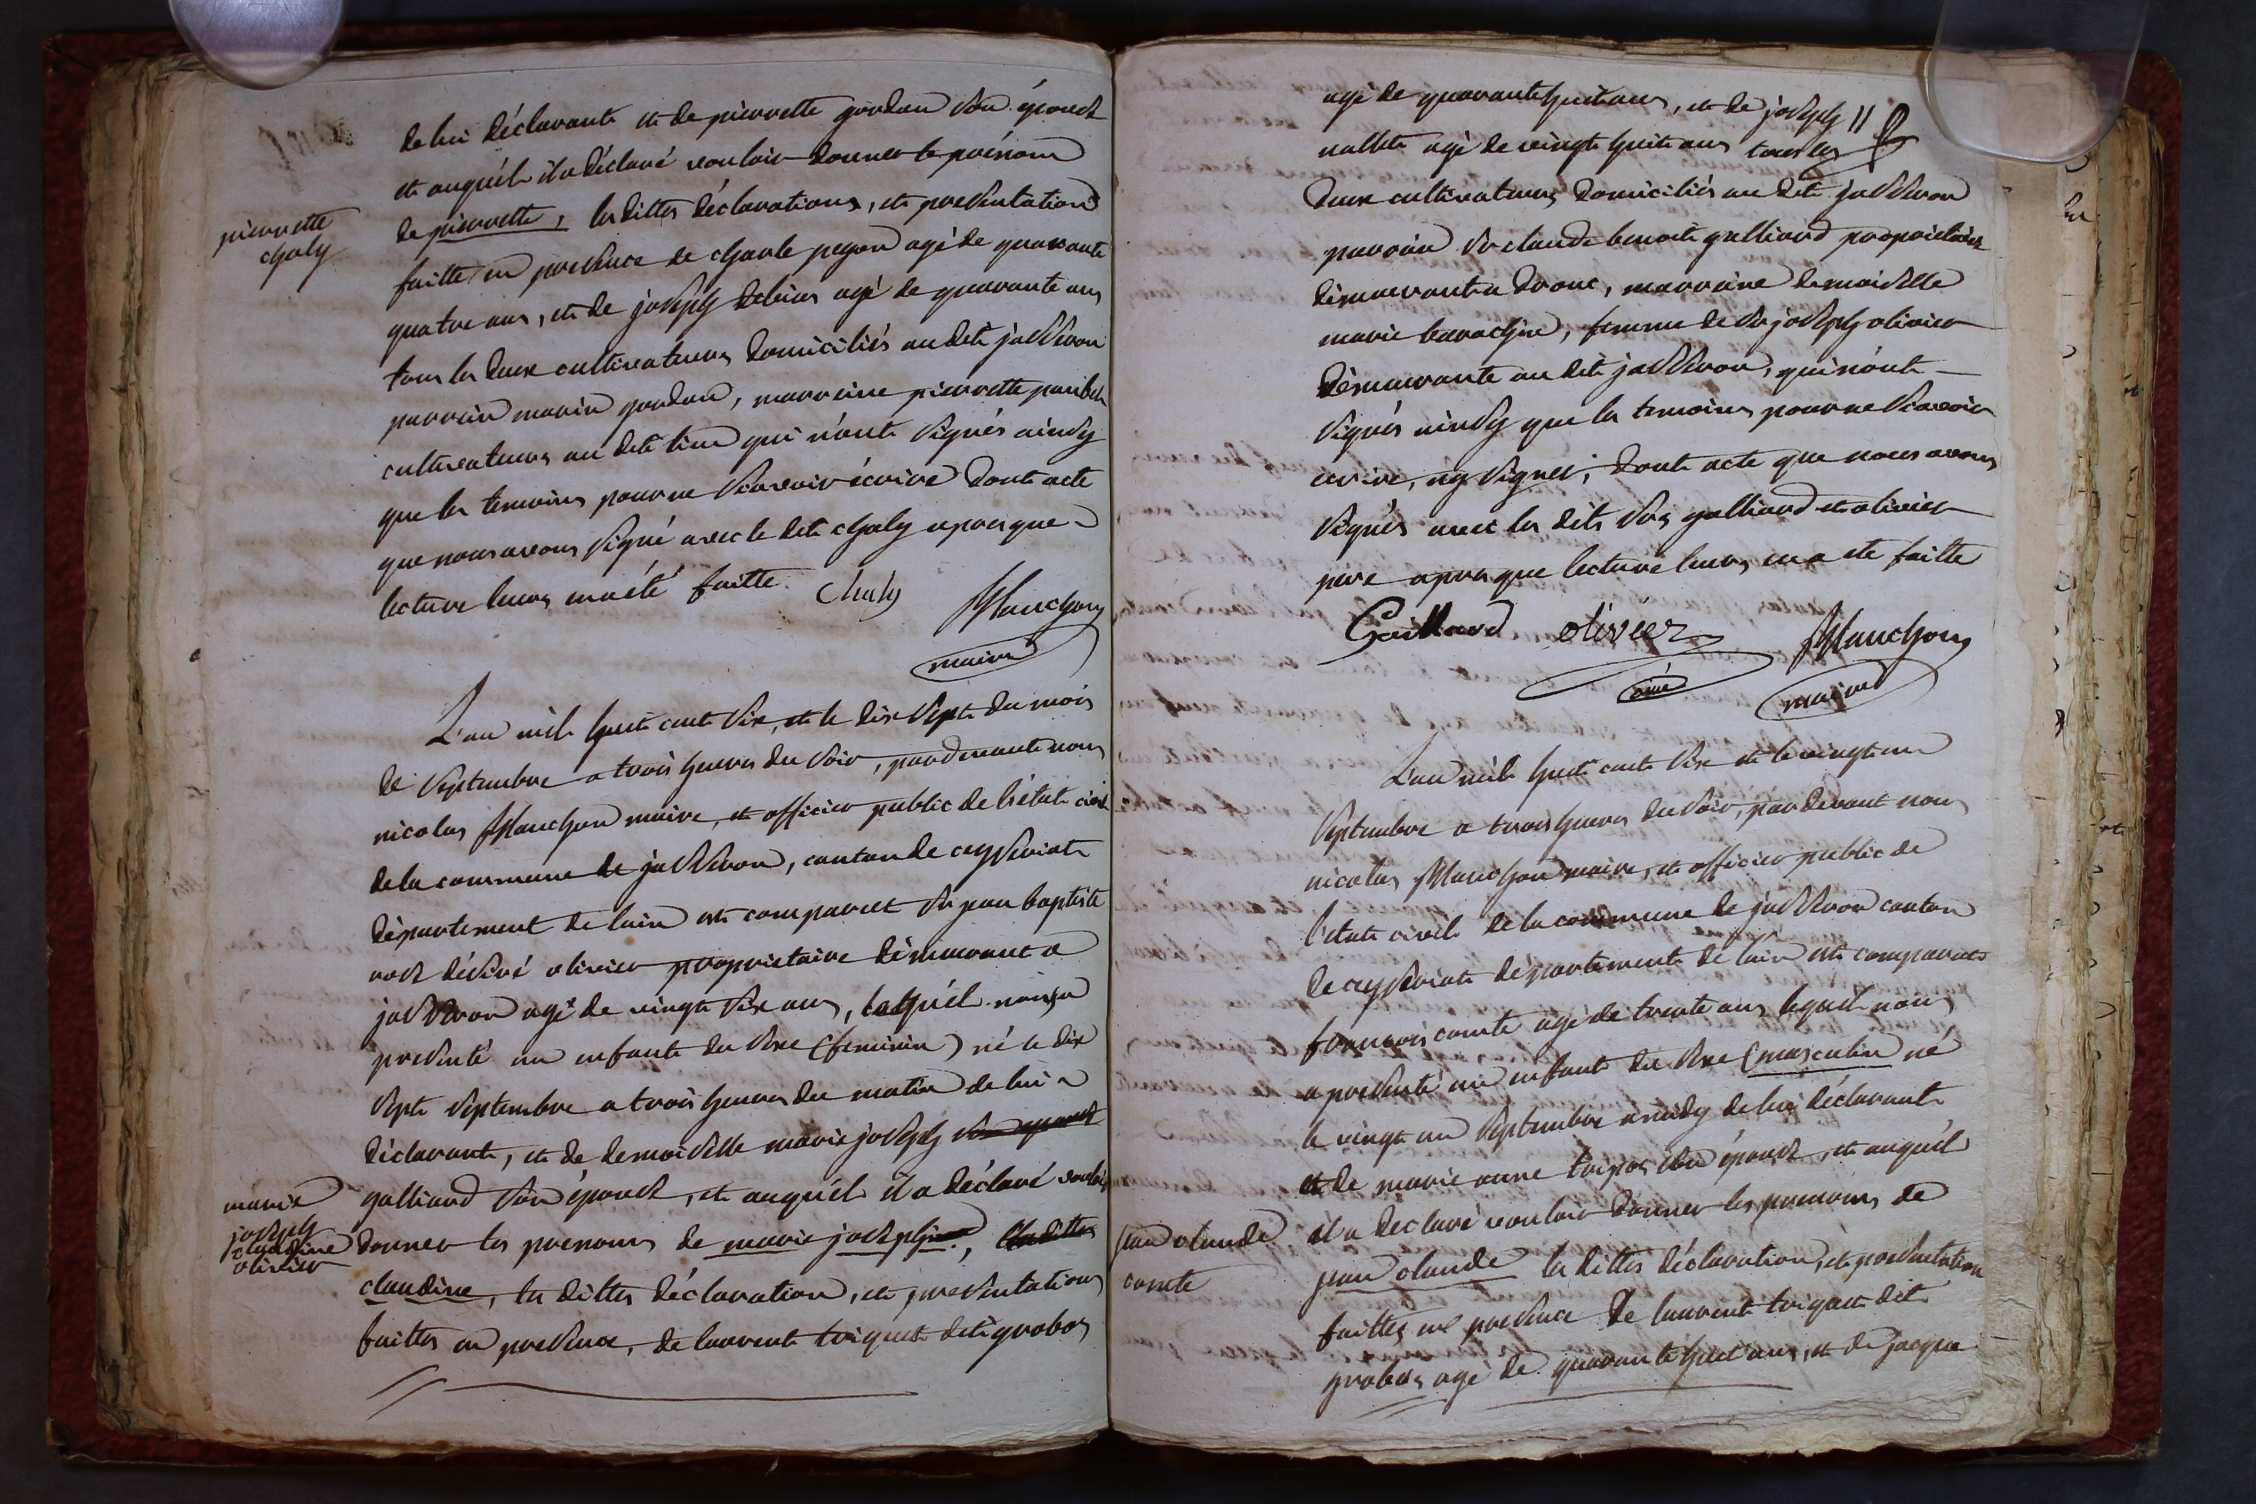 de lui déclarant et de pierrette gordan son épouse
et auquél il a déclaré vouloir donner le prénom
de pierrette, lesdittes déclarations, et presentations
pierrette
chaly
faitte en presence de charle pegon agé de quarante
quatre ans, et de joseph debias agé de quarante ans
tous les deux cultivateurs domiciliés au dit jasseron
parrain marin gordan, marraine pierrette
cultivateurs au dit lieu qui n'ont signés ainsy
que les temoins pour ne sçavoir écrire dont acte
que nous avons signé avec le dit chaly apres que
lecture leurs en a été faitte. Chaly
maire
L'an mil huit cent six, et le dix sept du mois
de septembre a trois heures du soir, pardevant nous
nicolas maire, et officier public de l'état civil
de la commune de jasseron, canton de ceyseriat
département de l'ain est comparut sr jean baptiste
désiré olivier propriétaire démeurant a
jasseron agé de vingt six ans, lequél nous a
presenté un enfant du sexe (feminin) né le dix
sept septembre a trois heures du matin de lui
déclarant, et de demoiselle marie joseph son epouse
galliard son épouse, et auquél il a déclaré vouloir
marie
joseph
claudine
olivier
donner les prenoms de marie joseph, lesdittes
claudine, les dittes déclaration, et presentations
faittes en presence, de laurent triquet dit grobos
agé de quarante huit ans, et de joseph 11
nallet agé de vingt huit ans tous les
deux cultivateurs domiciliés au dit jasseron
parrain sr claude benoit galliard propriétaire
démeurant a drom, marraine demoiselle
marie barachin, femme de sr joseph olivier
démeurante au dit jasseron, qui n'ont
signés ainsy que les temoins pour ne sçavoir
ecrire, ny signer, dont acte que nous avons
signés avec les dits srs galliard et olivier
pere apres que lecture leurs en a été faitte
Gaillard olivier
ainé maire
L'an mil huit cent six et le vingt un
septembre a trois heures du soir, pardevant nous
nicolas maire, et officier public de
l'état civil de la commune de jasseron canton
de ceyseriat département de l'ain est comparut
françois comte agé de trente ans lequel nous
a presenté un enfant du sexe (masculin né
le vingt un septembre a midy de lui déclarant
et de marie anne son épouse, et auquél
il a declaré vouloir donner les prenoms de
jean claude
comte
jean claude les dittes déclaration, et presentation
faittes en presence de laurent triquet dit
grobos agé de quarante huit ans, et de jacque